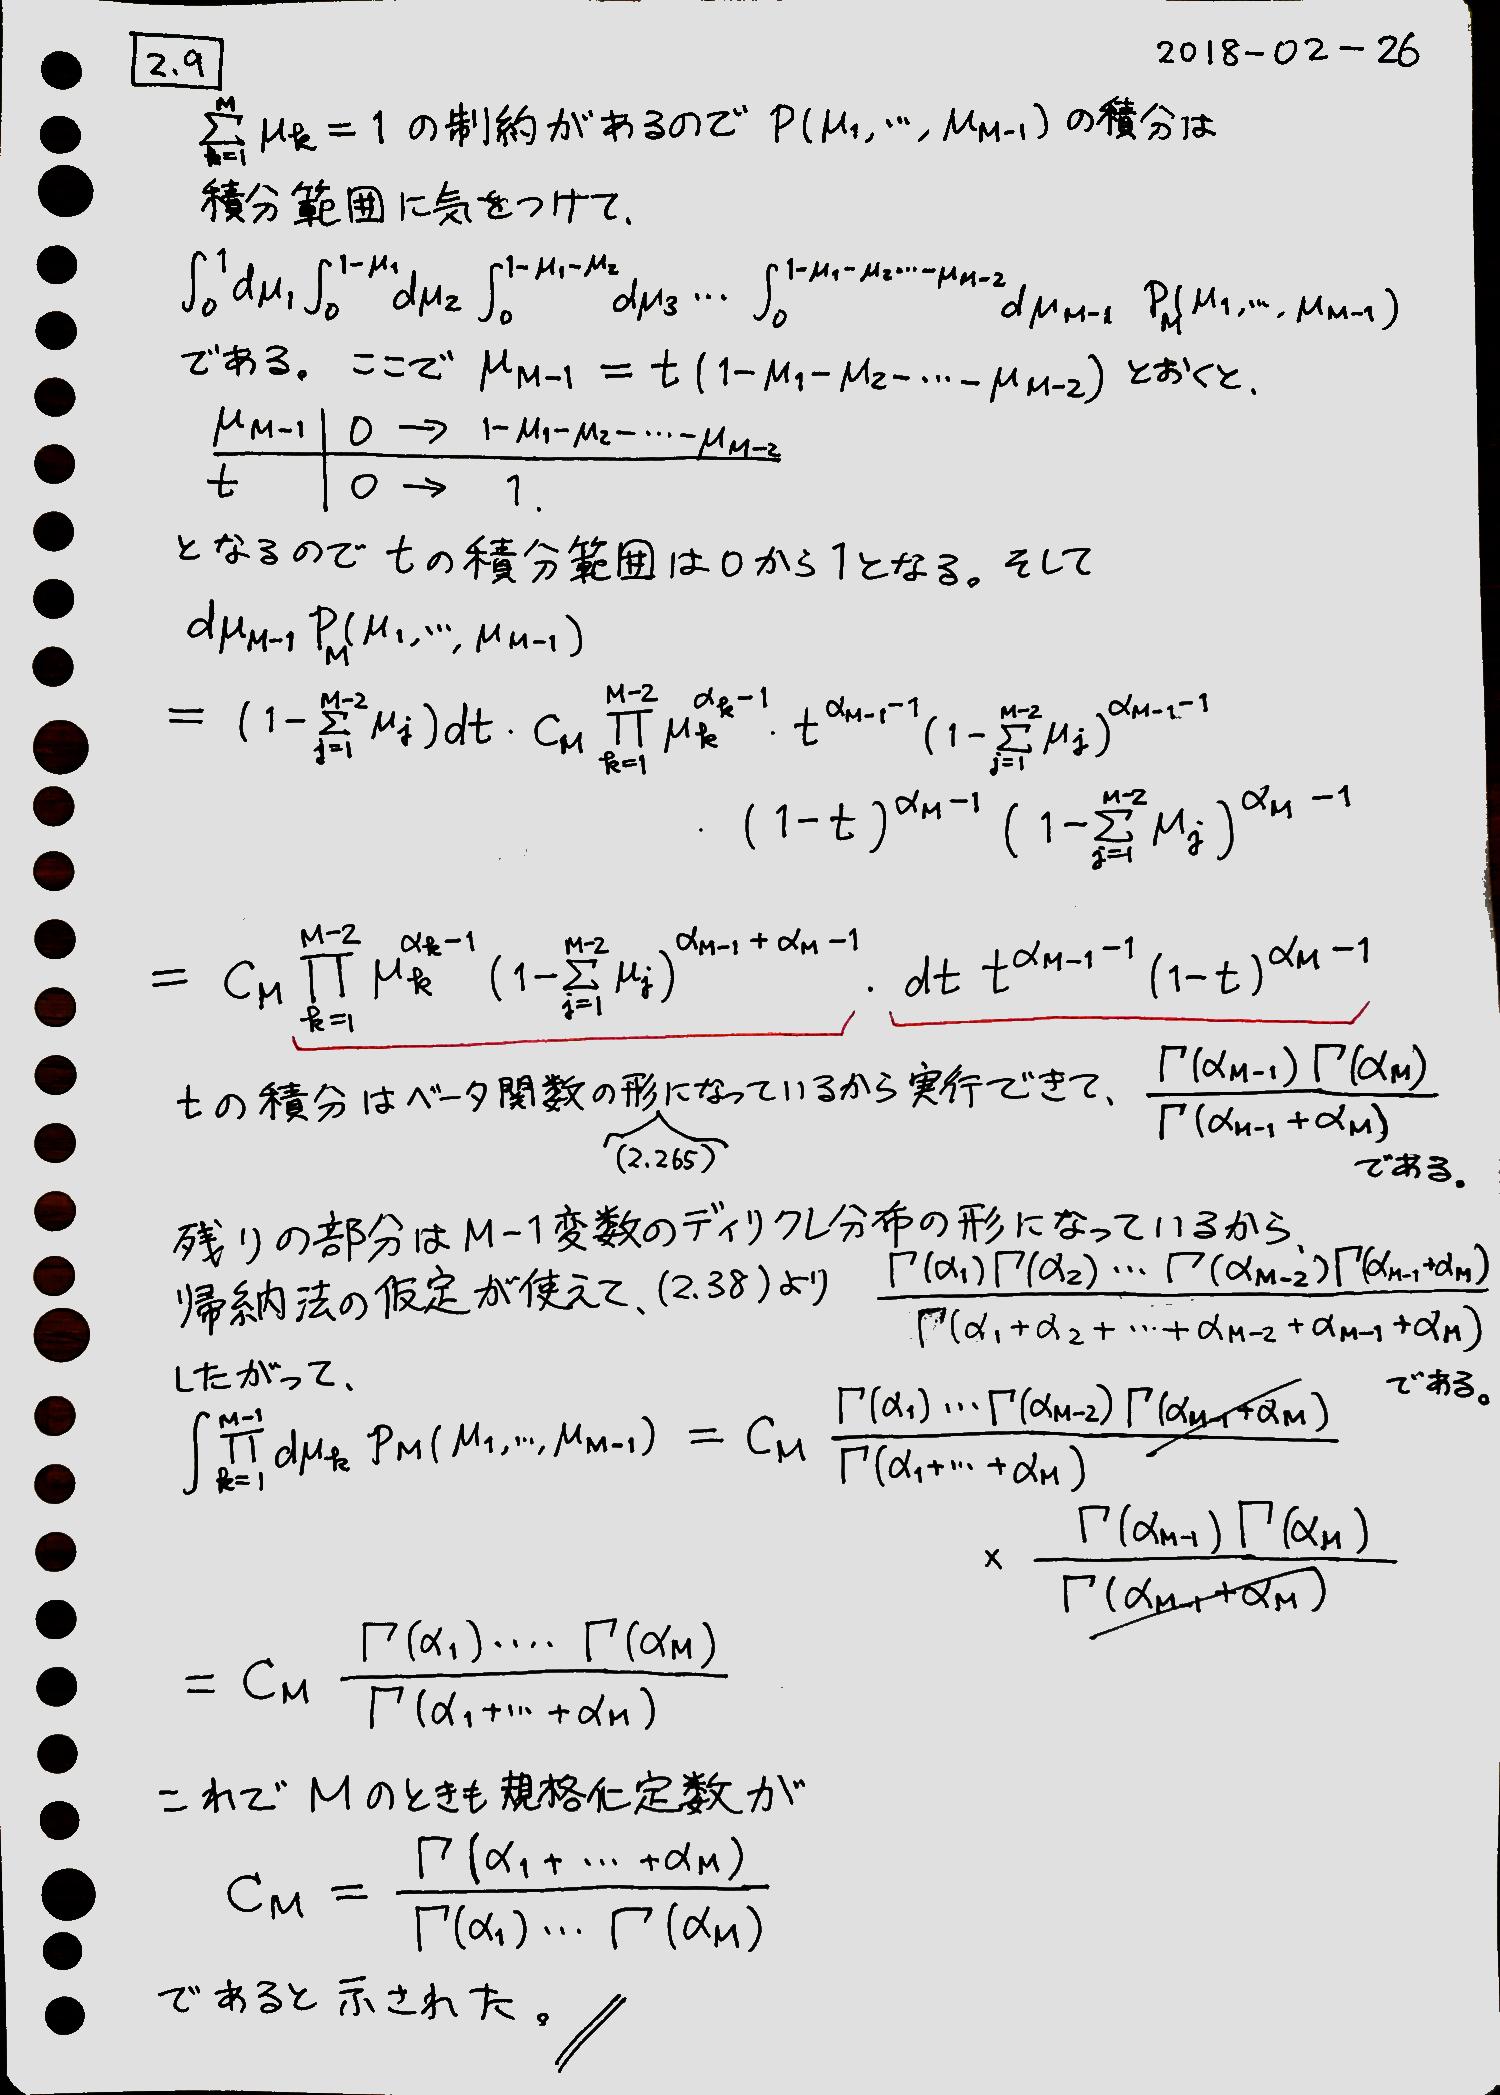 2.9
2018-02-26
\sum_{k=1}^{M} μ_k = 1 の制約があるので P(μ_1, …, μ_{M-1}) の積分は
積分範囲に気をつけて、
∫_0^1 dμ_1 ∫_0^{1-μ_1} dμ_2 ∫_0^{1-μ_1-μ_2} dμ_3 … ∫_0^{1-μ_1-μ_2…-μ_{M-2}} dμ_{M-1} P_M(μ_1, …, μ_{M-1})
である。ここで μ_{M-1} = t(1-μ_1-μ_2-…-μ_{M-2}) とおくと、
μ_{M-1} | 0 → 1-μ_1-μ_2-…-μ_{M-2}
t | 0 → 1.
となるので tの積分範囲は0から1となる。そして
dμ_{M-1} P_M(μ_1, …, μ_{M-1})
= (1-\sum_{j=1}^{M-2} μ_j)dt · C_M \prod_{k=1}^{M-2} μ_k^{α_k-1} · t^{α_{M-1}-1} (1-\sum_{j=1}^{M-2} μ_j)^{α_{M-1}-1}
· (1-t)^{α_M-1} (1-\sum_{j=1}^{M-2} μ_j)^{α_M-1}
= C_M \prod_{k=1}^{M-2} μ_k^{α_k-1} (1-\sum_{j=1}^{M-2} μ_j)^{α_{M-1}+α_M-1} · dt t^{α_{M-1}-1} (1-t)^{α_M-1}
tの積分はベータ関数の形になっているから実行できて、 \frac{Γ(α_{M-1}) Γ(α_M)}{Γ(α_{M-1}+α_M)}
(2.265)
である。
残りの部分はM-1変数のディリクレ分布の形になっているから、
帰納法の仮定が使えて、(2.38)より \frac{Γ(α_1)Γ(α_2) … Γ(α_{M-2})Γ(α_{M-1}+α_M)}{Γ(α_1+α_2+…+α_{M-2}+α_{M-1}+α_M)}
である。
したがって、
∫ \prod_{k=1}^{M-1} dμ_k P_M(μ_1, …, μ_{M-1}) = C_M \frac{Γ(α_1) … Γ(α_{M-2}) Γ(α_{M-1}+α_M)}{Γ(α_1+…+α_M)}
× \frac{Γ(α_{M-1}) Γ(α_M)}{Γ(α_{M-1}+α_M)}
= C_M \frac{Γ(α_1) …. Γ(α_M)}{Γ(α_1+…+α_M)}
これで Mのときも規格化定数が
C_M = \frac{Γ(α_1+…+α_M)}{Γ(α_1) … Γ(α_M)}
であると示された。//